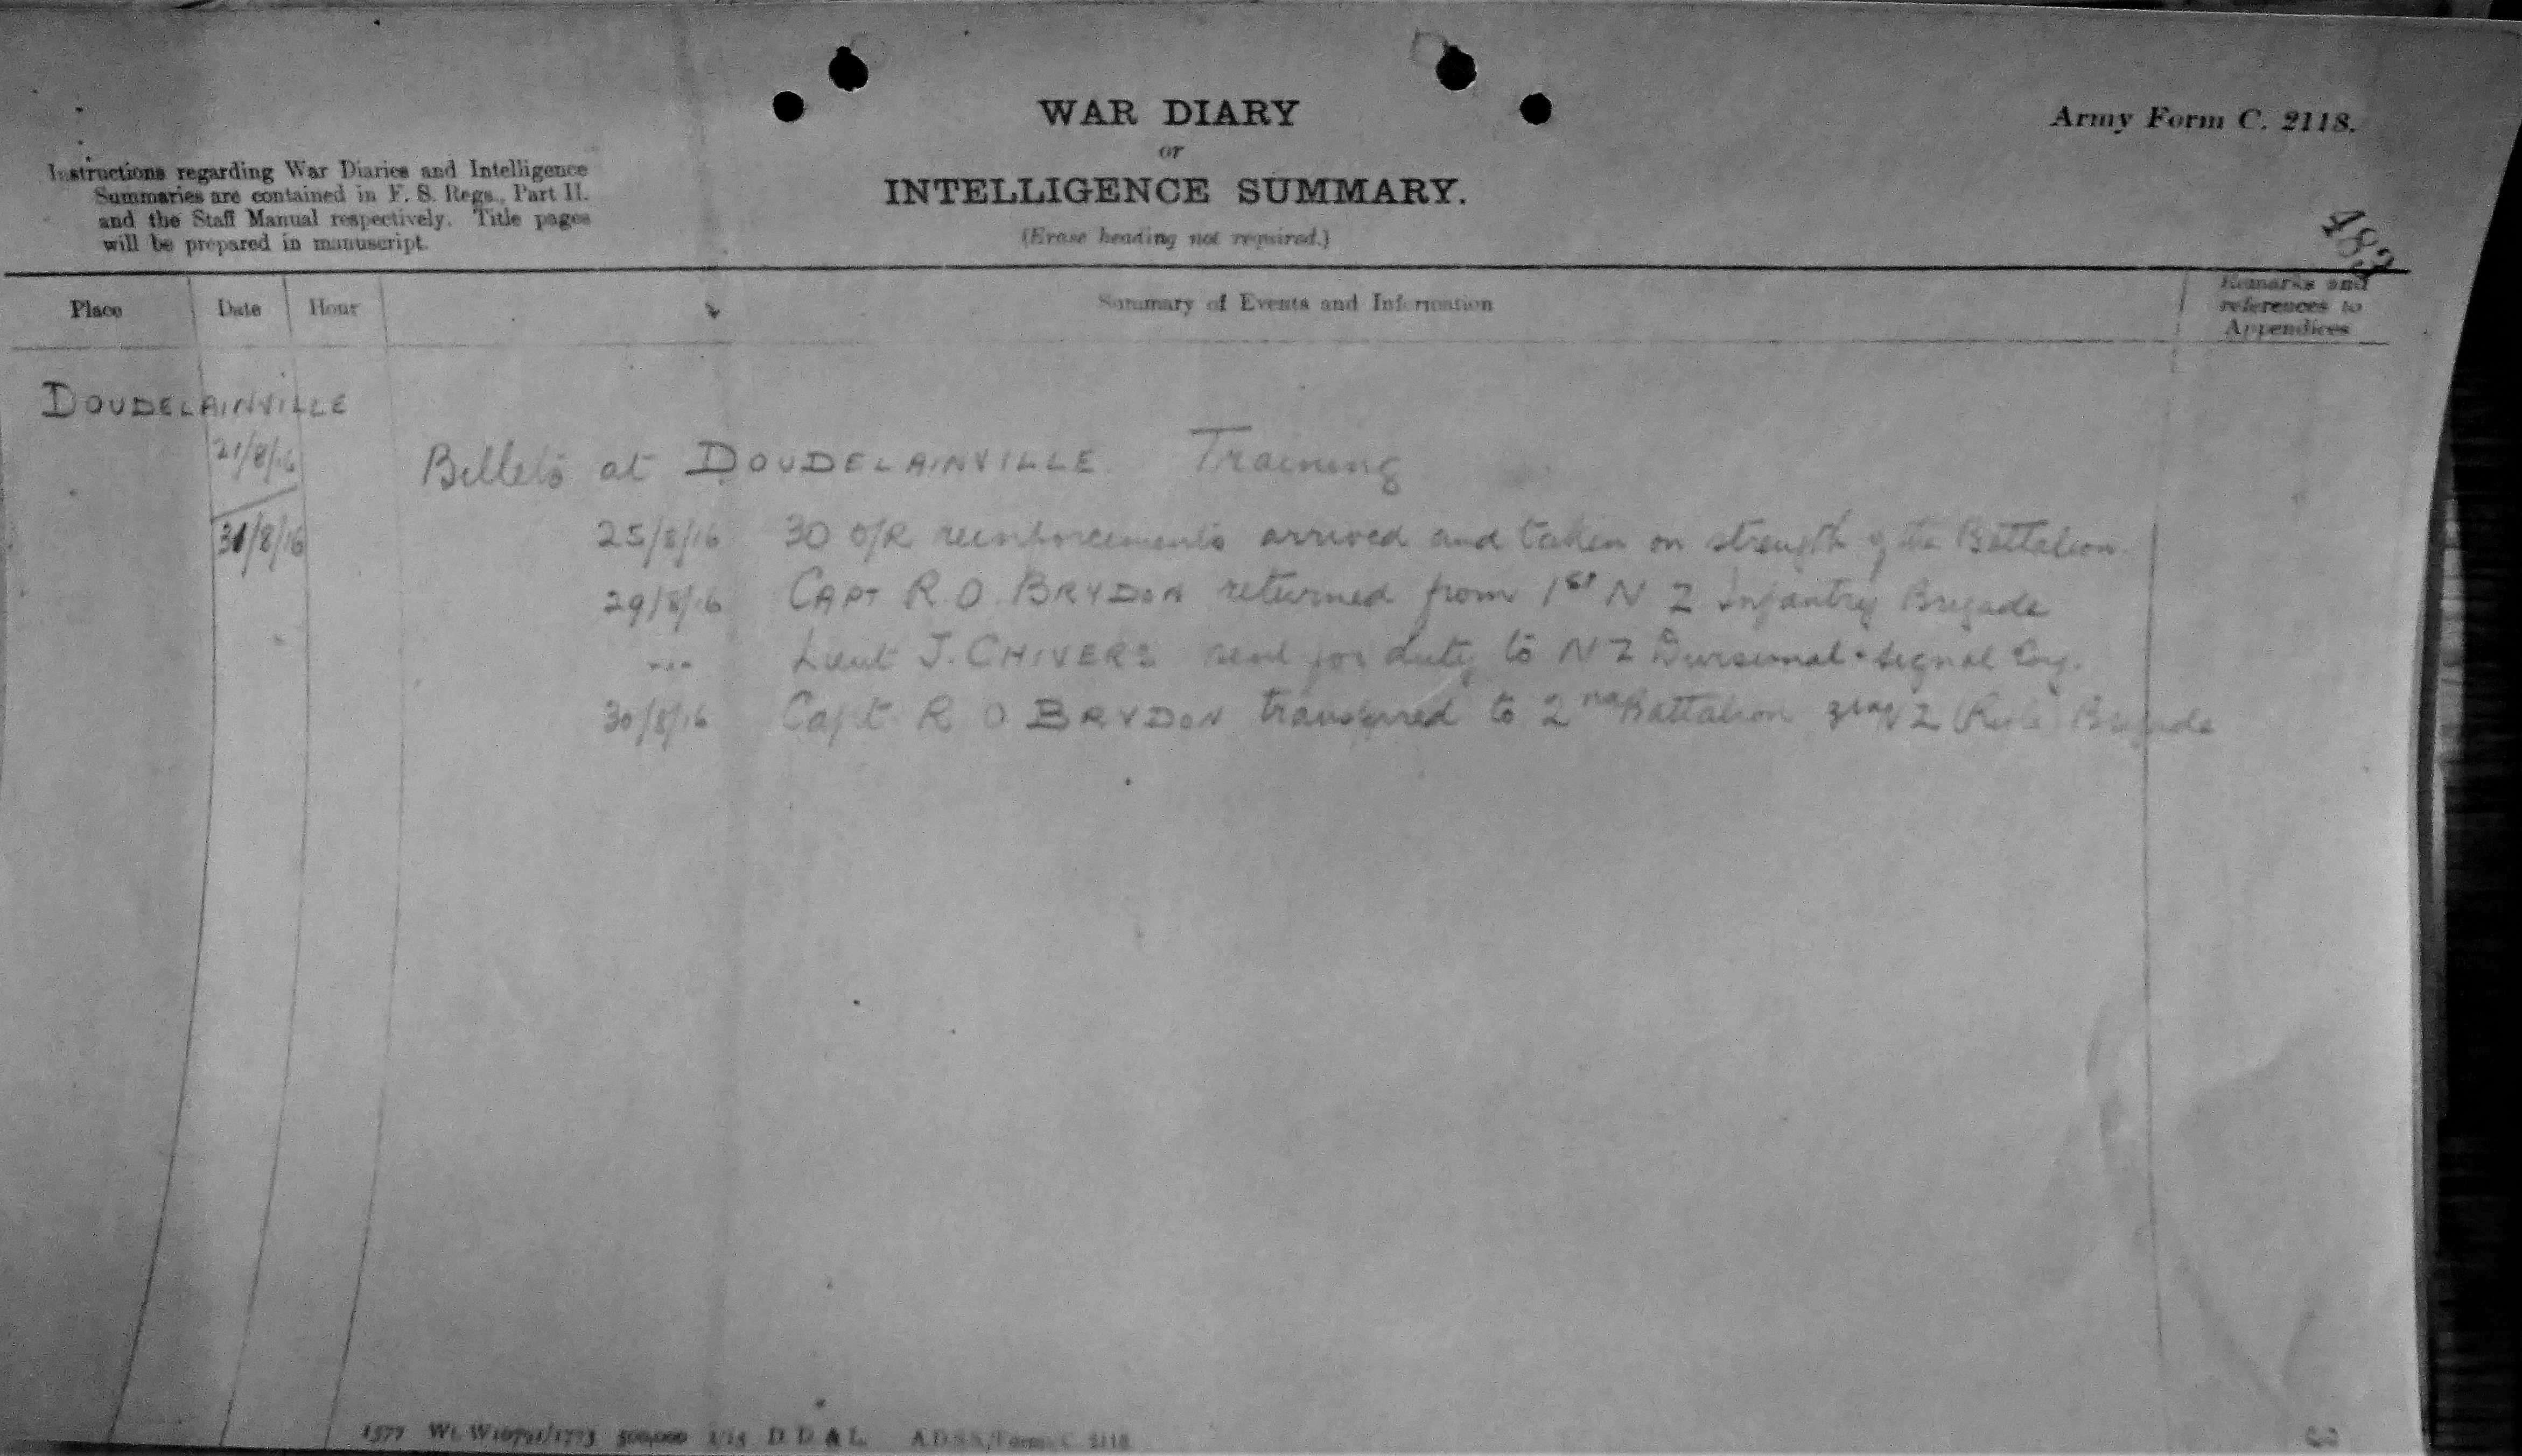 WAR DIARY
or
INTELLIGENCE SUMMARY.
(Erase heading not required.)
Army Form C. 2118.
Instructions regarding War Diaries and Intelligence
Summaries are contained in F. S. Regs., Part II.
and the Staff Manual respectively. Title pages
will be prepared in manuscript.
483
Place Date Hour Summary of Events and Information Remarks and
references to
Appendices
DOUDELAINVILLE
21/8/16 Billets at DOUDELAINVILLE. Training
31/8/16 25/8/16 30 O/R reinforcements arrived and taken on strength of the Battalion.
29/8/16 CAPT R.O. BRYDON returned from 1st N Z Infantry Brigade
Lieut J. CHIVERS send for duty to NZ Divisional Signal Coy.
30/8/16 Capt R O BRYDON transferred to 2nd Battalion 3rd NZ (Rifle) Brigade
1577 Wt. W10791/1773 500,000 1/15 D. D. & L. A.D.S.S./Forms/C. 2118